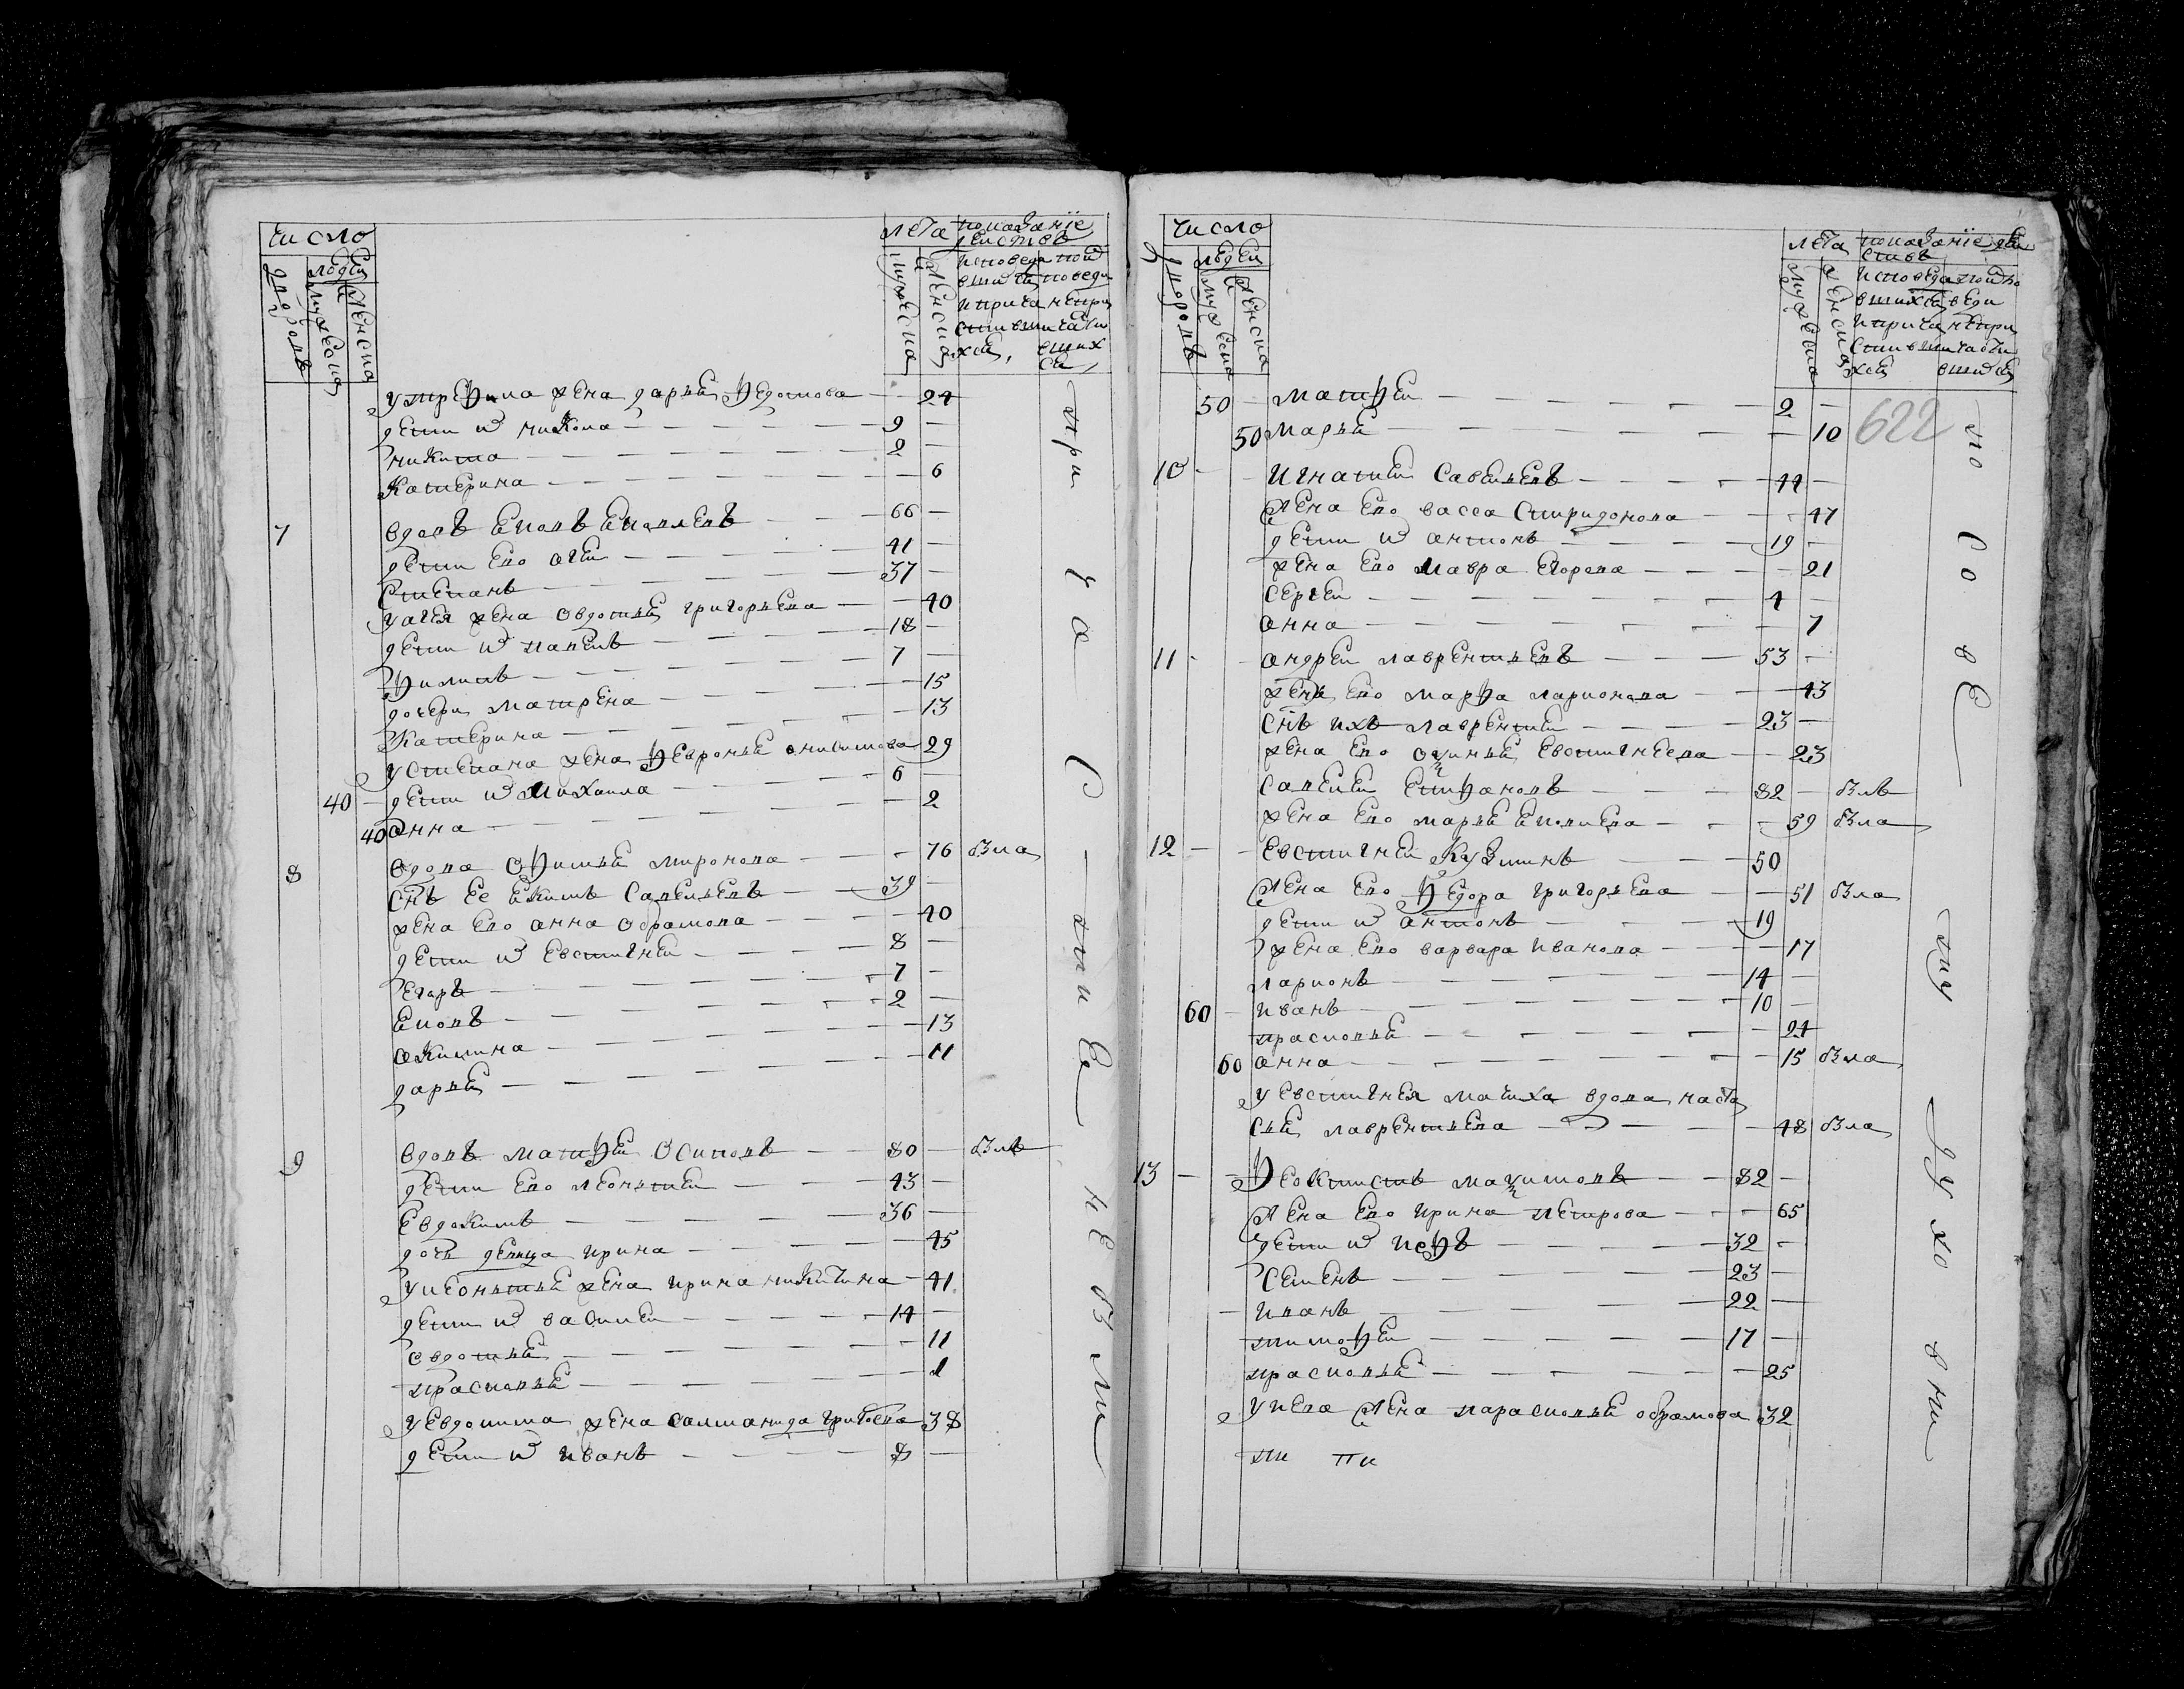 число
дворовъ
людей
мужеска
женска
лета
мужеска
женска
показаніе
действъ
исповеда
вшихся
и прича
стивши
хся,
неи
споведа
непри
части
вших
ся,
у трефила жена дарья федотова — 24
дети их никола — 9 —
никита — 2
Катерина — 6
7 вдовъ Яковъ Яковлевъ — 66 —
дети ево агей — 41 —
Степанъ — 37 —
у агея жена овдотья григорьева — 40
дети их павелъ — 18 —
филипъ — 7 —
дочери матрена — 15
Катерина — 13
у степана жена февронья никитова 29
40 дети их михаила — 6 —
40 анна — 2
8 вдова офимья миронова — 76 была
снъ ее екимъ савельевъ — 39 —
жена ево анна обрамова — 40
дети их евстигней — 8 —
егаръ — 7 —
яковъ — 2 —
акилина — 13
дарья — 11
9 вдовъ матфей осиповъ — 80 — былъ
дети ево леонътей — 43 —
евдокимъ — 36 —
дочь девица ирина — 45
у леонътья жена ирина никитина — 41
дети их василей — 14 —
овдотья — 11
прасковья — 1
у евдокима жена саламанида григоева 38
дети их иванъ — 8 —
при ча с тие не вѣ ли
число
дворовъ
людей
мужеска
женска
лета
мужеска
женска
показаніе дей
ствъ
исповеда
вшихся
и прича
стивши
хся
неиспо
веда
непри
части
вшися
622
50 — матфей — 2 —
50 марья — 10
10 — игнатей савельевъ — 44 —
жена ево васса спиридонова — 47
дети их антонъ — 19 —
жена ево мавра егорова — 21
сергей — 4 —
анна — 7
11 — андрей лаврентьевъ — 53 —
жена ево марфа ларионова — 43
снъ ихъ лаврентей — 23 —
жена ево оксинья евстигнеева — 23
савелей стефановъ — 82 — былъ
жена ево марья яковлева — 59 была
12 — евстигней кузминъ — 50
жена ево федора григорьева — 51 была
дети их антонъ — 19
жена ево варвара иванова — 17
ларионъ — 14 —
60 — иванъ — 10 —
прасковья — 24
60 анна — 15 была
у евстигнея мачиха вдова наста
сья лаврентьева — 48 была
13 — феоктистъ максимовъ — 82 —
жена ево ирина петрова — 65
дети их иевъ — 32 —
семенъ — 23 —
иванъ — 22 —
тимофей — 17 —
прасковья — 25
у иева жена парасковья обрамова 32
по со вѣ ту духо вни